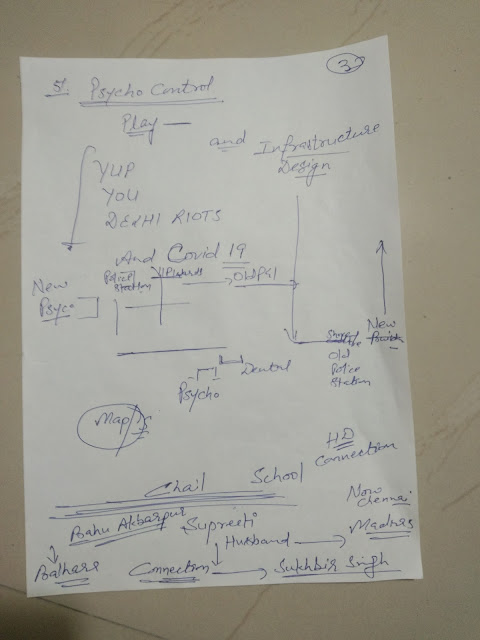 3
5. Psycho Control
Play —
and Infrastructure
Design
YUP
YOU
DELHI RIOTS
And Covid 19
Police
Station
New
Psyco
New
Old
Police
Station
Dental
Psycho
Map
HD
Connection
Chail School
Now
Chennai
Bahu Akbarpur Supreeti
Husband Madras
Balhara Connection Sukhbir Singh